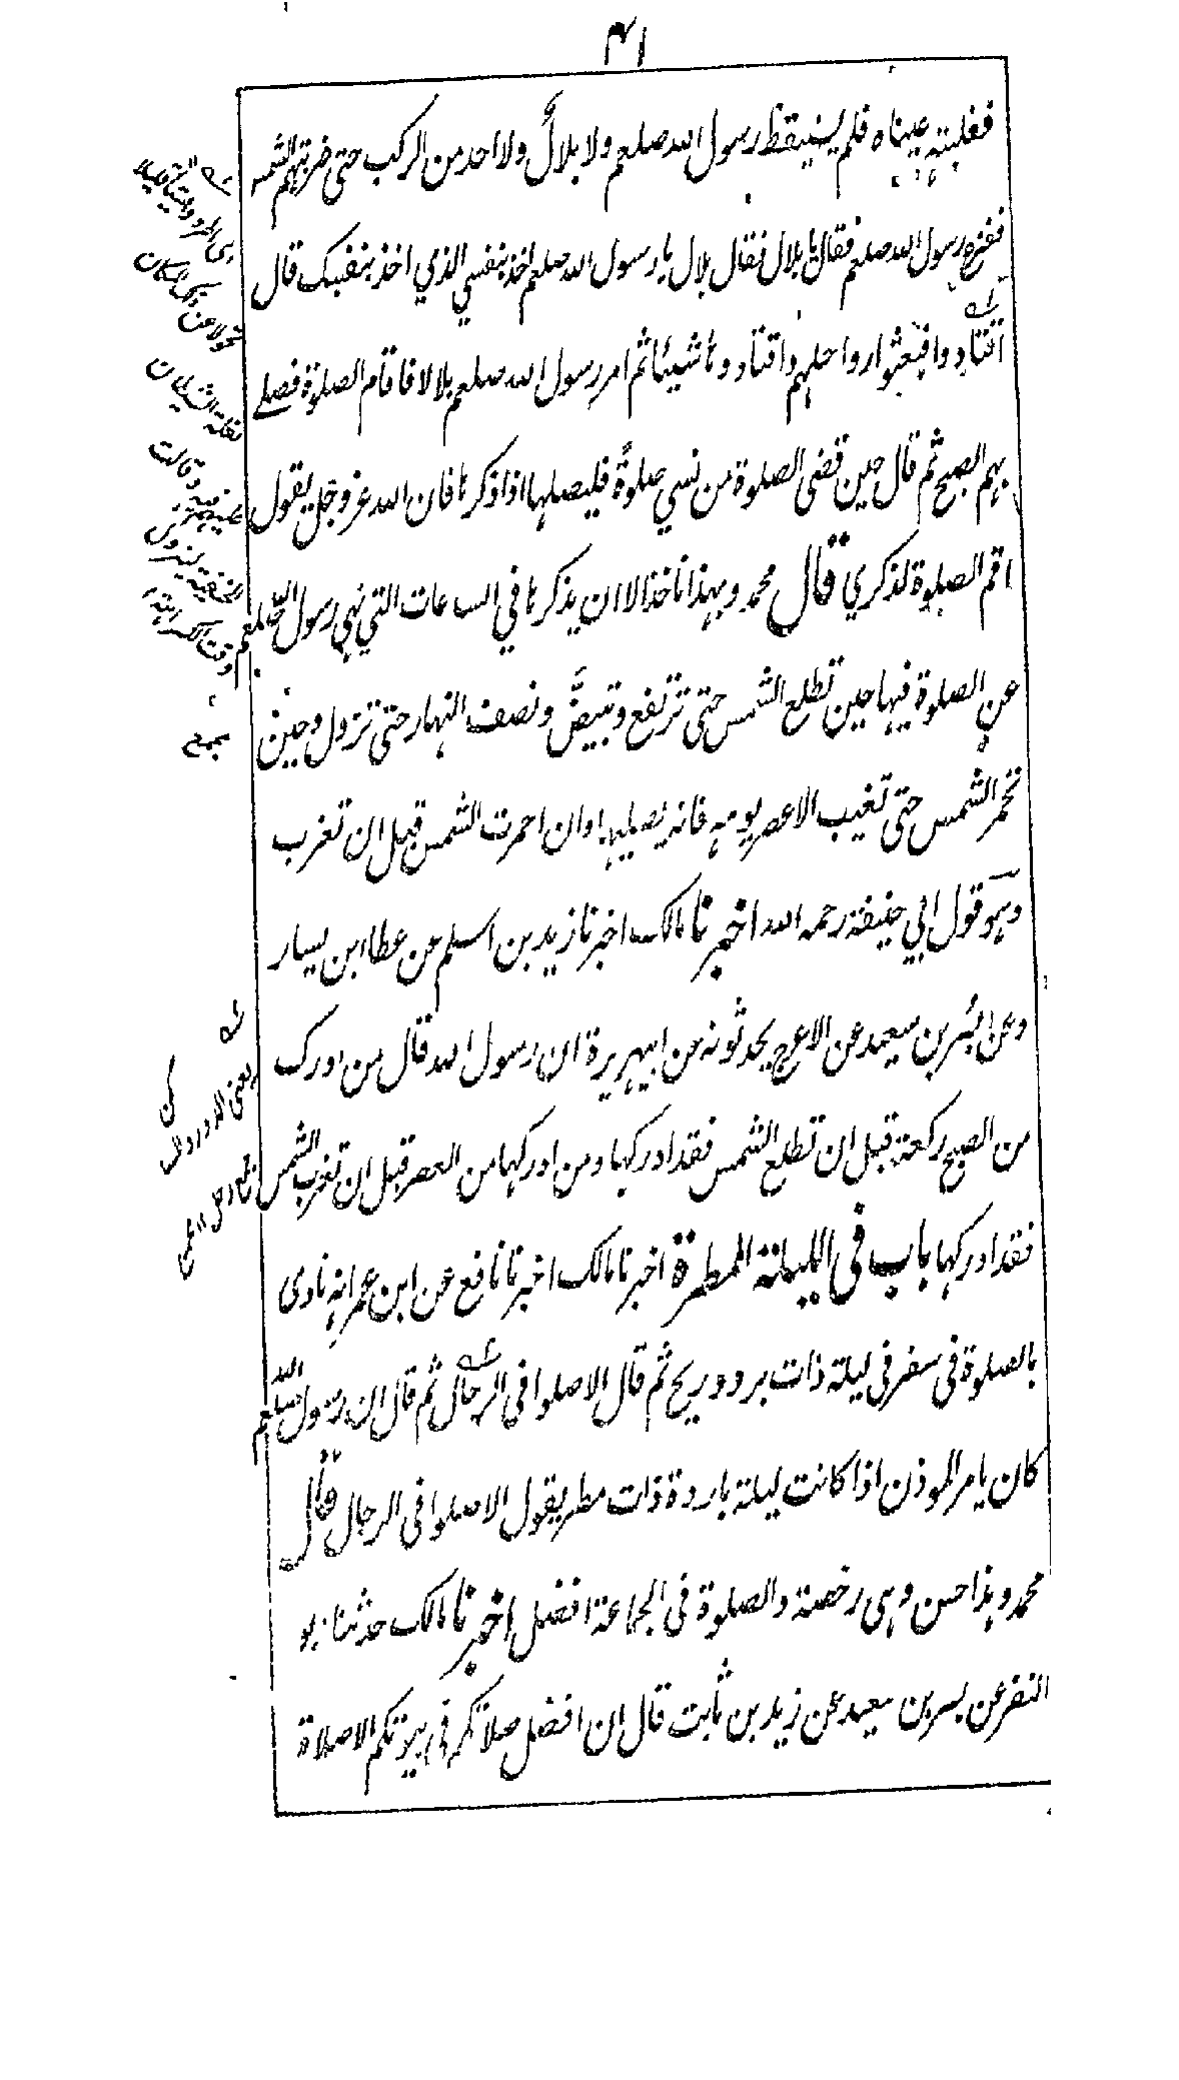 ۴۱
فغلبته عيناه فلم يستيقظ رسول الله صلعم ولا بلالٌ ولا احد من الركب حتى ضربتهم الشمس
ففزع رسول الله صلعم فقال يا بلال فقال بلال يا رسول الله صلعم اخذ بنفسي الذي اخذ بنفسك قال
اقتادوا فبعثوا رواحلهم واقتادوها شيئا ثم امر رسول الله صلعم بلالا فاقام الصلوة فصلے
بهم الصبح ثم قال حين قضى الصلوة من نسي صلوةً فليصلها اذا ذكرها فان الله عز وجل يقول
اقم الصلوة لذكري قال محمد وبهذا ناخذ الا ان يذكرها في الساعات التي نهى رسول الله صلعم
عن الصلوة فيها حين تطلع الشمس حتى ترتفع وتبيضّ ونصف النهار حتى تزول وحين
تحمر الشمس حتى تغيب الا عصر يومه فانه يصليها وان احمرت الشمس قبل ان تغرب
وهو قول ابي حنيفة رحمه الله اخبرنا مالك اخبرنا زيد بن اسلم عن عطا ابن يسار
وعن بُسر بن سعيد عن الاعرج يحدثونه عن ابيهريرة ان رسول الله قال من ادرك
من الصبح ركعة قبل ان تطلع الشمس فقد ادركها ومن ادركها من العصر قبل ان تغرب الشمس
فقد ادركها باب في الليلة المطرة اخبرنا مالك اخبرنا نافع عن ابن عمر انه نادى
بالصلوة في سفر في ليلة ذات برد وريح ثم قال الا صلوا في الرحال ثم قال ان رسول الله صلعم
كان يامر الموذن اذا كانت ليلة باردة ذات مطر يقول الا صلوا في الرحال قال
محمد وهذا حسن وهي رخصة والصلوة في الجماعة افضل اخبرنا مالك حدثنا ابو
النضر عن بسر بن سعيد عن زيد بن ثابت قال ان افضل صلاتكم في بيوتكم الا صلاة
تحولا عن ذلك المكان
لغلبة الشيطان
مجمع